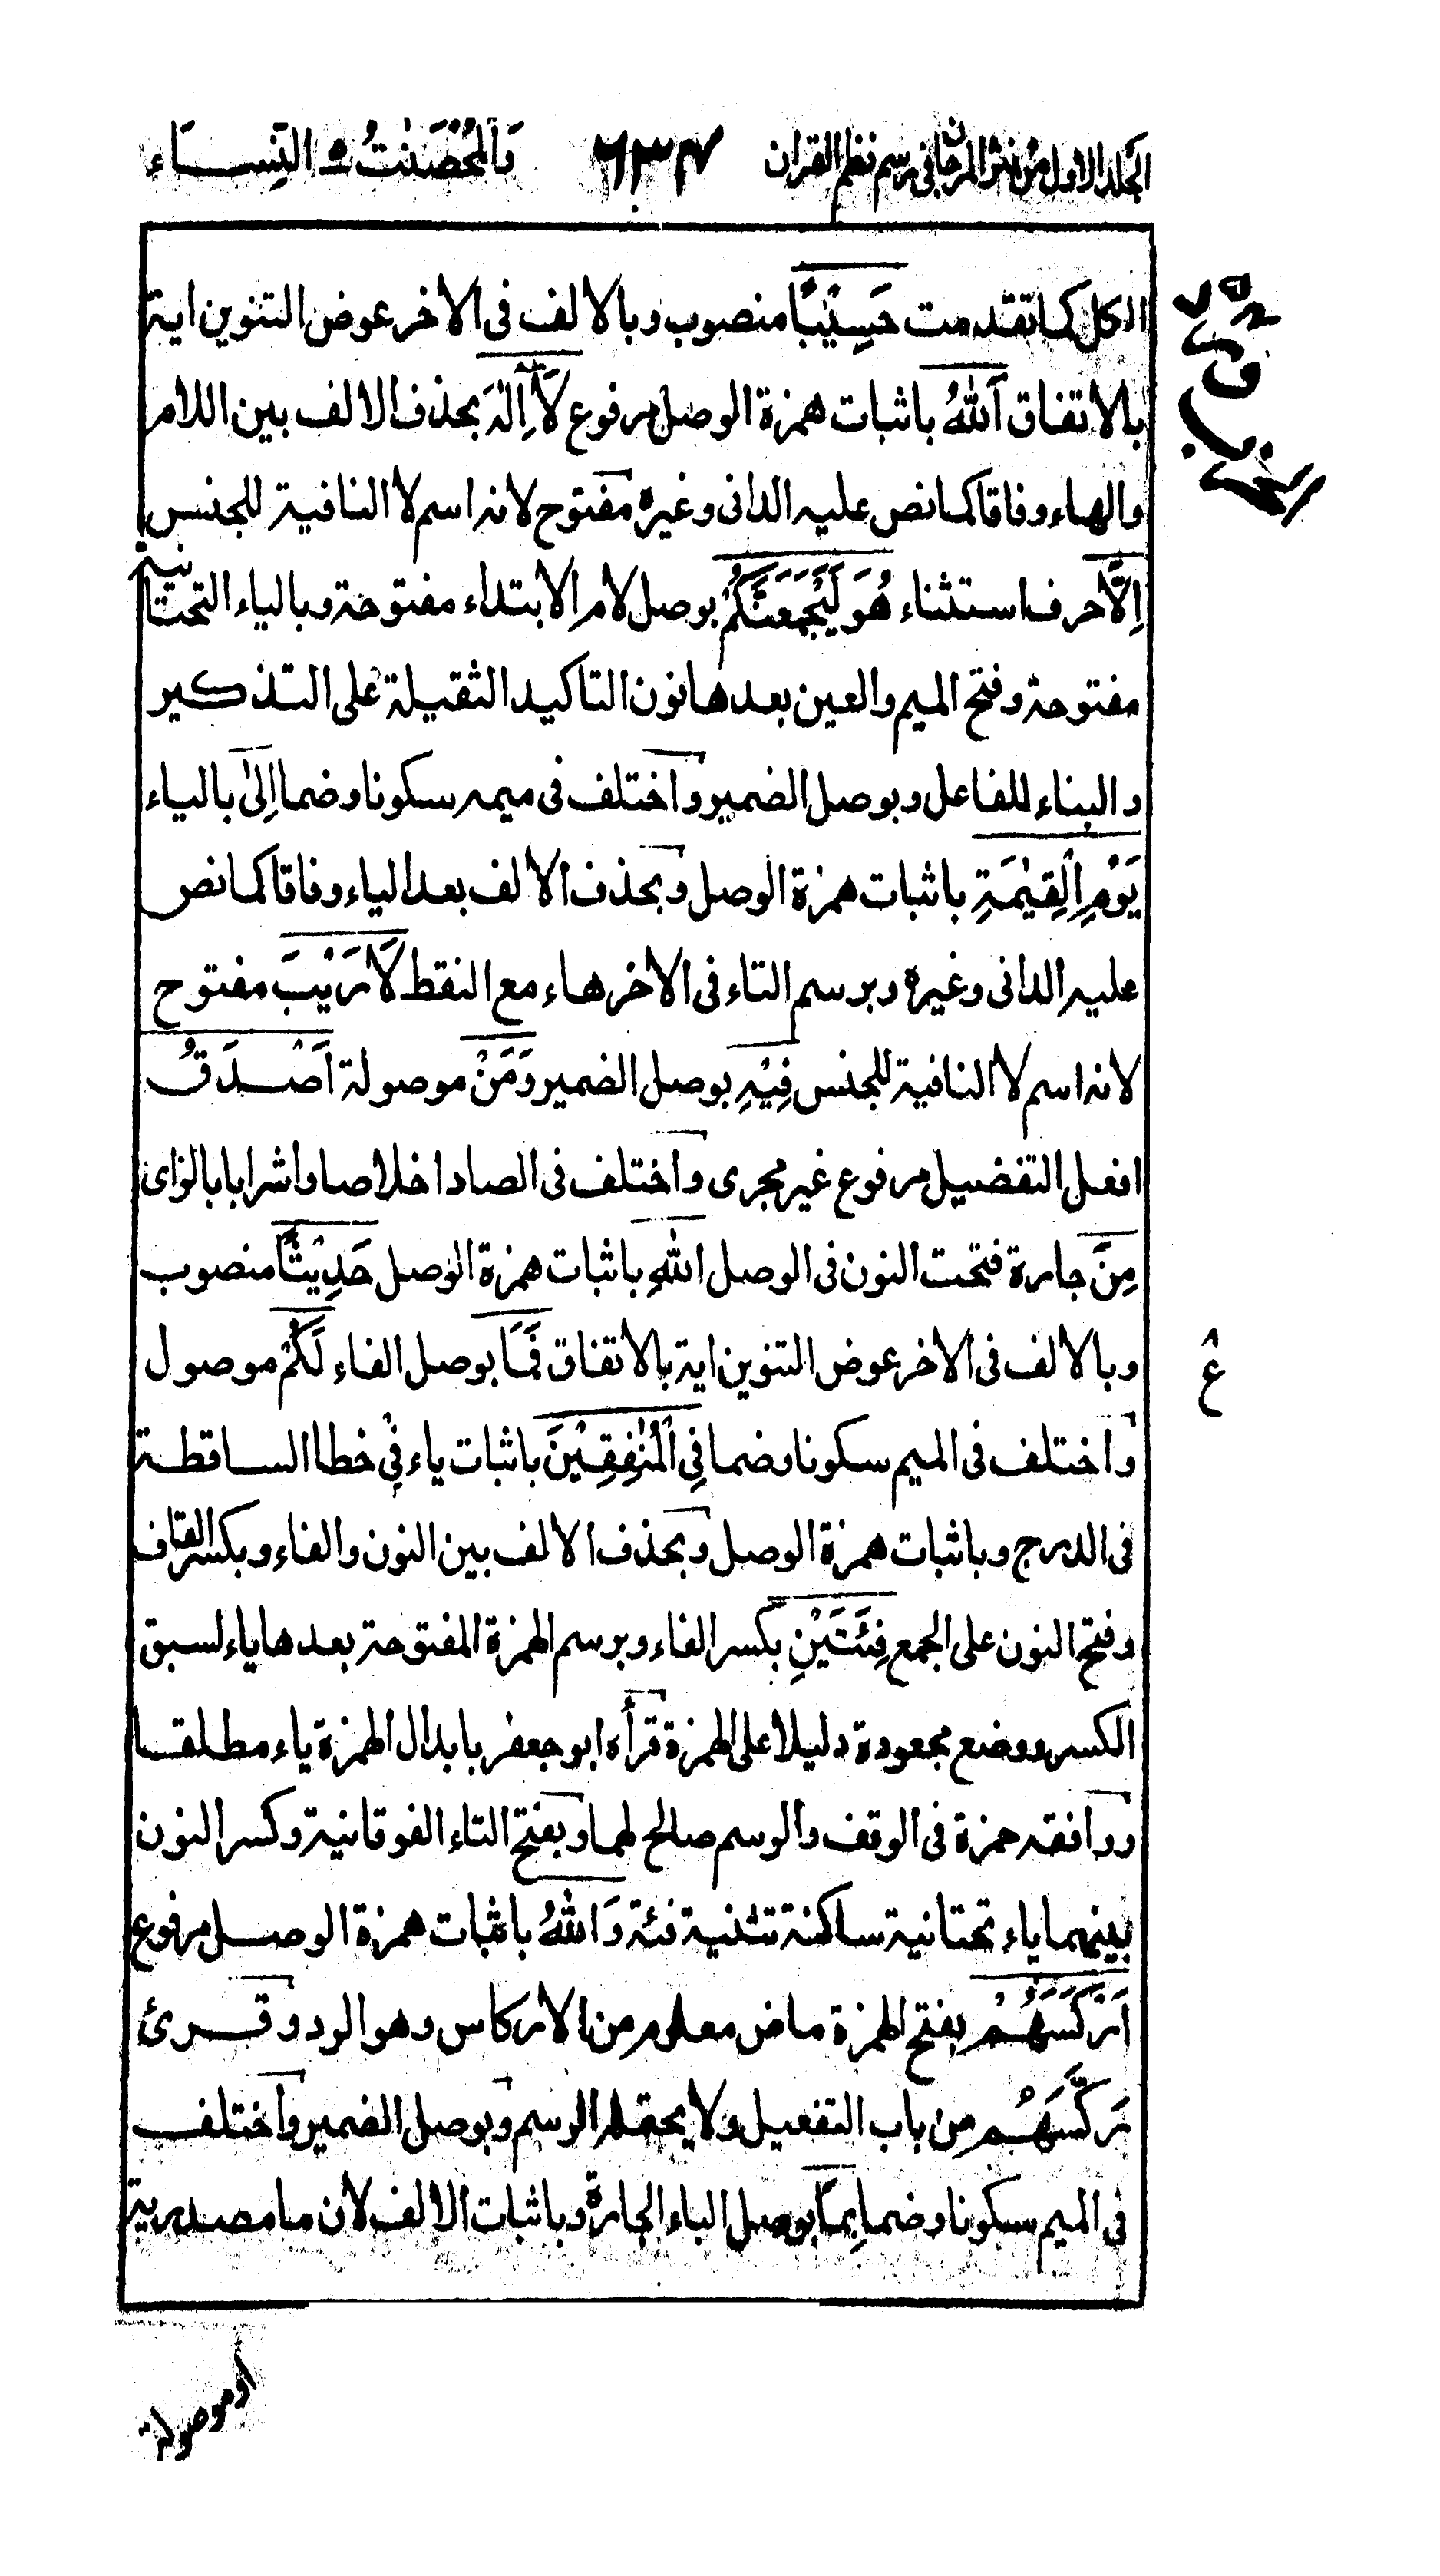 الجلد الاول من نثر المرجان فى رسم نظم القران ٦٣٤ وَالْمُحْصَنٰتُ ٥ النِّسَاء
الكل كما تقدمت حَسِيْبًا منصوب وبالالف فى الاخر عوض التنوين اية
بالاتفاق اَللّٰهُ باثبات همزة الوصل مرفوع لَآ اِلٰهَ بحذف الالف بين اللام
والهاء وفاقا كما نص عليه الدانى وغيره مفتوح لانه اسم لا النافية للجنس
اِلَّا حرف استثناء هُوَ لَيَجْمَعَنَّكُمْ بوصل لام الابتداء مفتوحة وبالياء التحتانية
مفتوحة وفتح الميم والعين بعدها نون التاكيد الثقيلة على التذكير
والبناء للفاعل وبوصل الضمير واختلف فى ميمه سكونا وضما اِلٰى بالياء
يَوْمِ الْقِيٰمَةِ باثبات همزة الوصل وبحذف الالف بعد الياء وفاقا كما نص
عليه الدانى وغيره وبرسم التاء فى الاخر هاء مع النقط لَا رَيْبَ مفتوح
لانه اسم لا النافية للجنس فِيْهِ بوصل الضمير وَمَنْ موصولة اَصْدَقُ
افعل التفضيل مرفوع غير مجرى واختلف فى الصاد اخلاصا واشرابا بالزاى
مِنَ جارة فتحت النون فى الوصل اللّٰهِ باثبات همزة الوصل حَدِيْثًا منصوب
وبالالف فى الاخر عوض التنوين اية بالاتفاق فَمَا بوصل الفاء لَكُمْ موصول
واختلف فى الميم سكونا وضما فِى الْمُنٰفِقِيْنَ باثبات ياء فِى خطا الساقطة
فى الدرج وباثبات همزة الوصل وبحذف الالف بين النون والفاء وبكسر القاف
وفتح النون على الجمع فِئَتَيْنِ بكسر الفاء وبرسم الهمزة المفتوحة بعدها ياء لسبق
الكسر ووضع مجعودة دليلا على الهمزة قرأه ابو جعفر بابدال الهمزة ياء مطلقا
ووافقه حمزة فى الوقف والرسم صالح لهما وبفتح التاء الفوقانية وكسر النون
بينهما ياء تحتانية ساكنة تثنية فئة وَاللّٰهُ باثبات همزة الوصل مرفوع
اَرْكَسَهُمْ بفتح الهمزة ماض معلوم من الاركاس وهو الرد وقرئ
رَكَّسَهُمْ من باب التفعيل ولا يحتمله الرسم وبوصل الضمير واختلف
فى الميم سكونا وضما بِمَا بوصل الباء الجارة وباثبات الالف لان ما مصدرية
او موصولة
ع